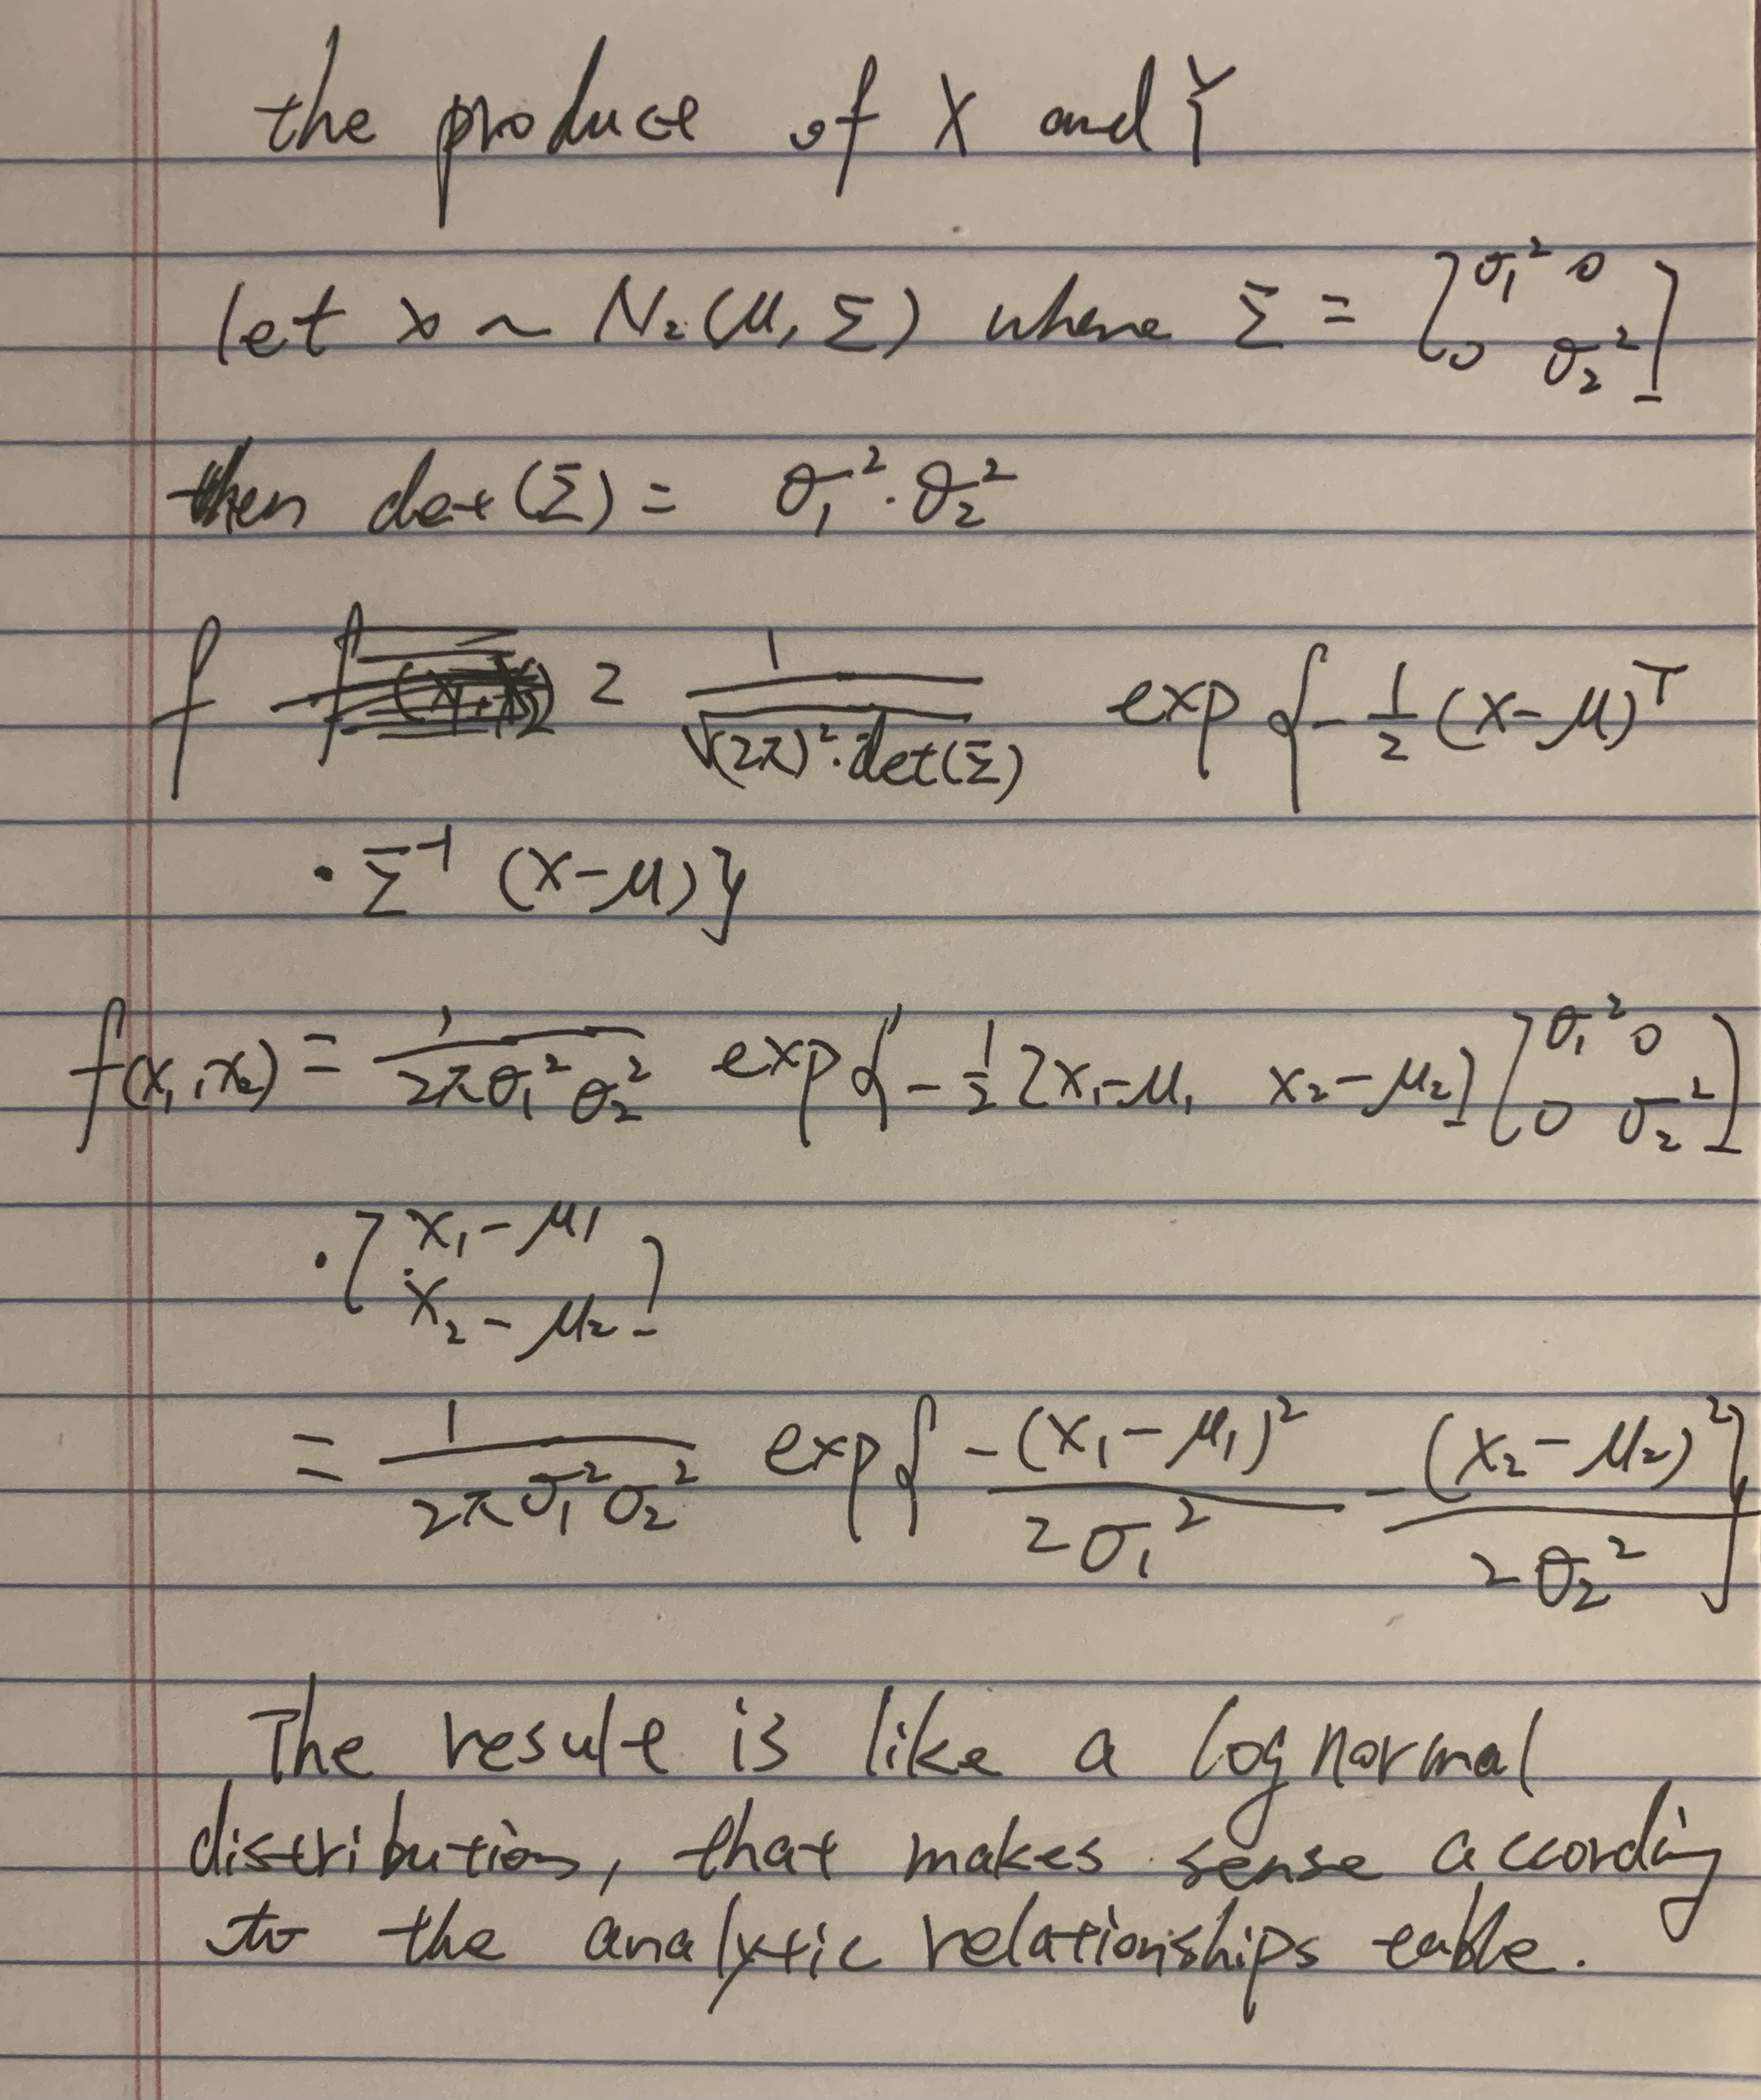 the produce of X and Y
let x ~ N₂(μ, Σ) where Σ = [σ₁² 0
0 σ₂²]
then det(Σ) = σ₁²·σ₂²
f = 1/√((2π)²·det(Σ)) exp{-1/2 (x-μ)ᵀ
· Σ⁻¹ (x-μ)}
f(x₁,x₂) = 1/(2πσ₁²σ₂²) exp{-1/2 [x₁-μ₁ x₂-μ₂] [σ₁² 0
0 σ₂²]
· [x₁-μ₁
x₂-μ₂]
= 1/(2πσ₁²σ₂²) exp{-(x₁-μ₁)²/(2σ₁²) - (x₂-μ₂)²/(2σ₂²)}
The result is like a lognormal
distribution, that makes sense according
to the analytic relationships table.